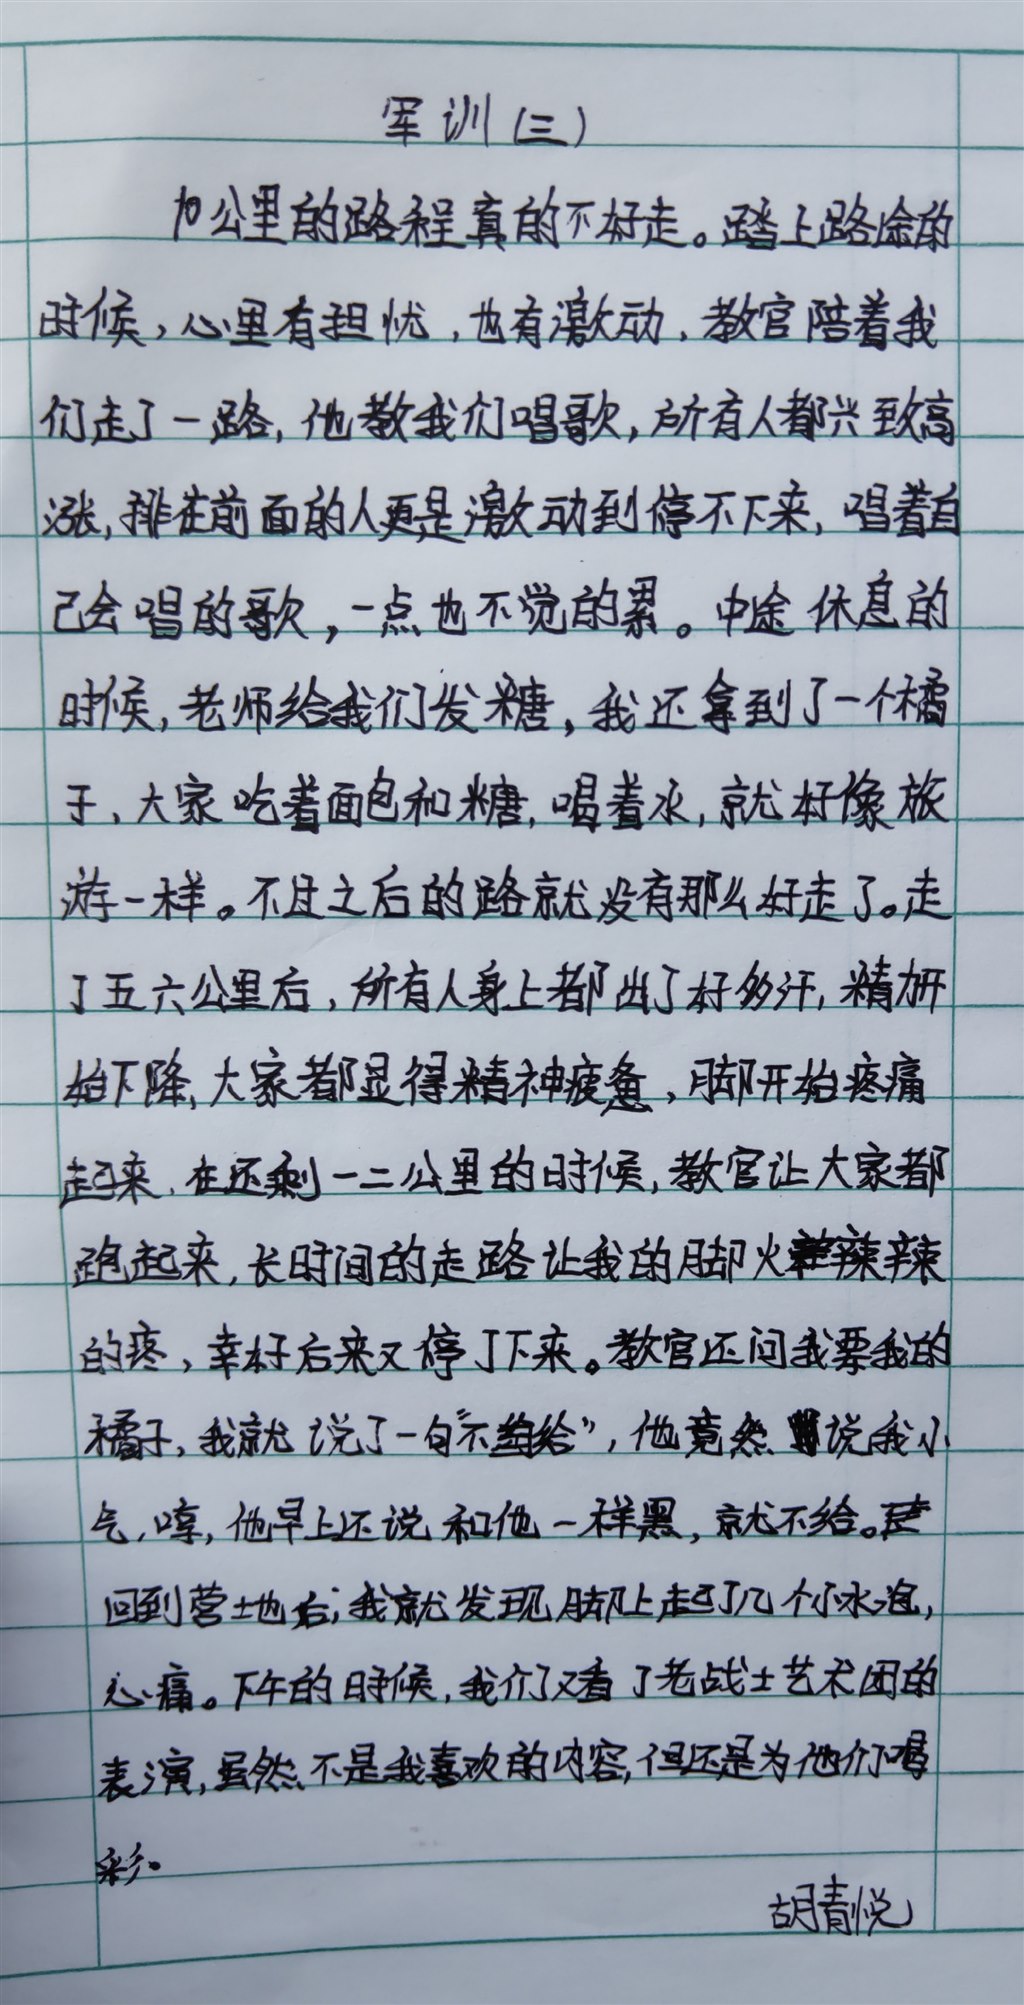 军训(三)
10公里的路程真的不好走。踏上路途的
时候,心里有担忧,也有激动,教官陪着我
们走了一路,他教我们唱歌,所有人都兴致高
涨,排在前面的人更是激动到停不下来,唱着自
己会唱的歌,一点也不觉的累。中途休息的
时候,老师给我们发糖,我还拿到了一个橘
子,大家吃着面包和糖,喝着水,就好像旅
游一样。不过之后的路就没有那么好走了。走
了五六公里后,所有人身上都出了好多汗,精力开
始下降,大家都显得精神疲惫,脚开始疼痛
起来,在还剩一二公里的时候,教官让大家都
跑起来,长时间的走路让我的脚火辣辣
的疼,幸好后来又停了下来。教官还问我要我的
橘子,我就说了一句“不给”,他竟然说我小
气,哼,他早上还说和他一样黑,就不给。
回到营地后,我就发现脚上起了几个小水泡,
心痛。下午的时候,我们又看了老战士艺术团的
表演,虽然不是我喜欢的内容,但还是为他们喝
彩。
胡青悦